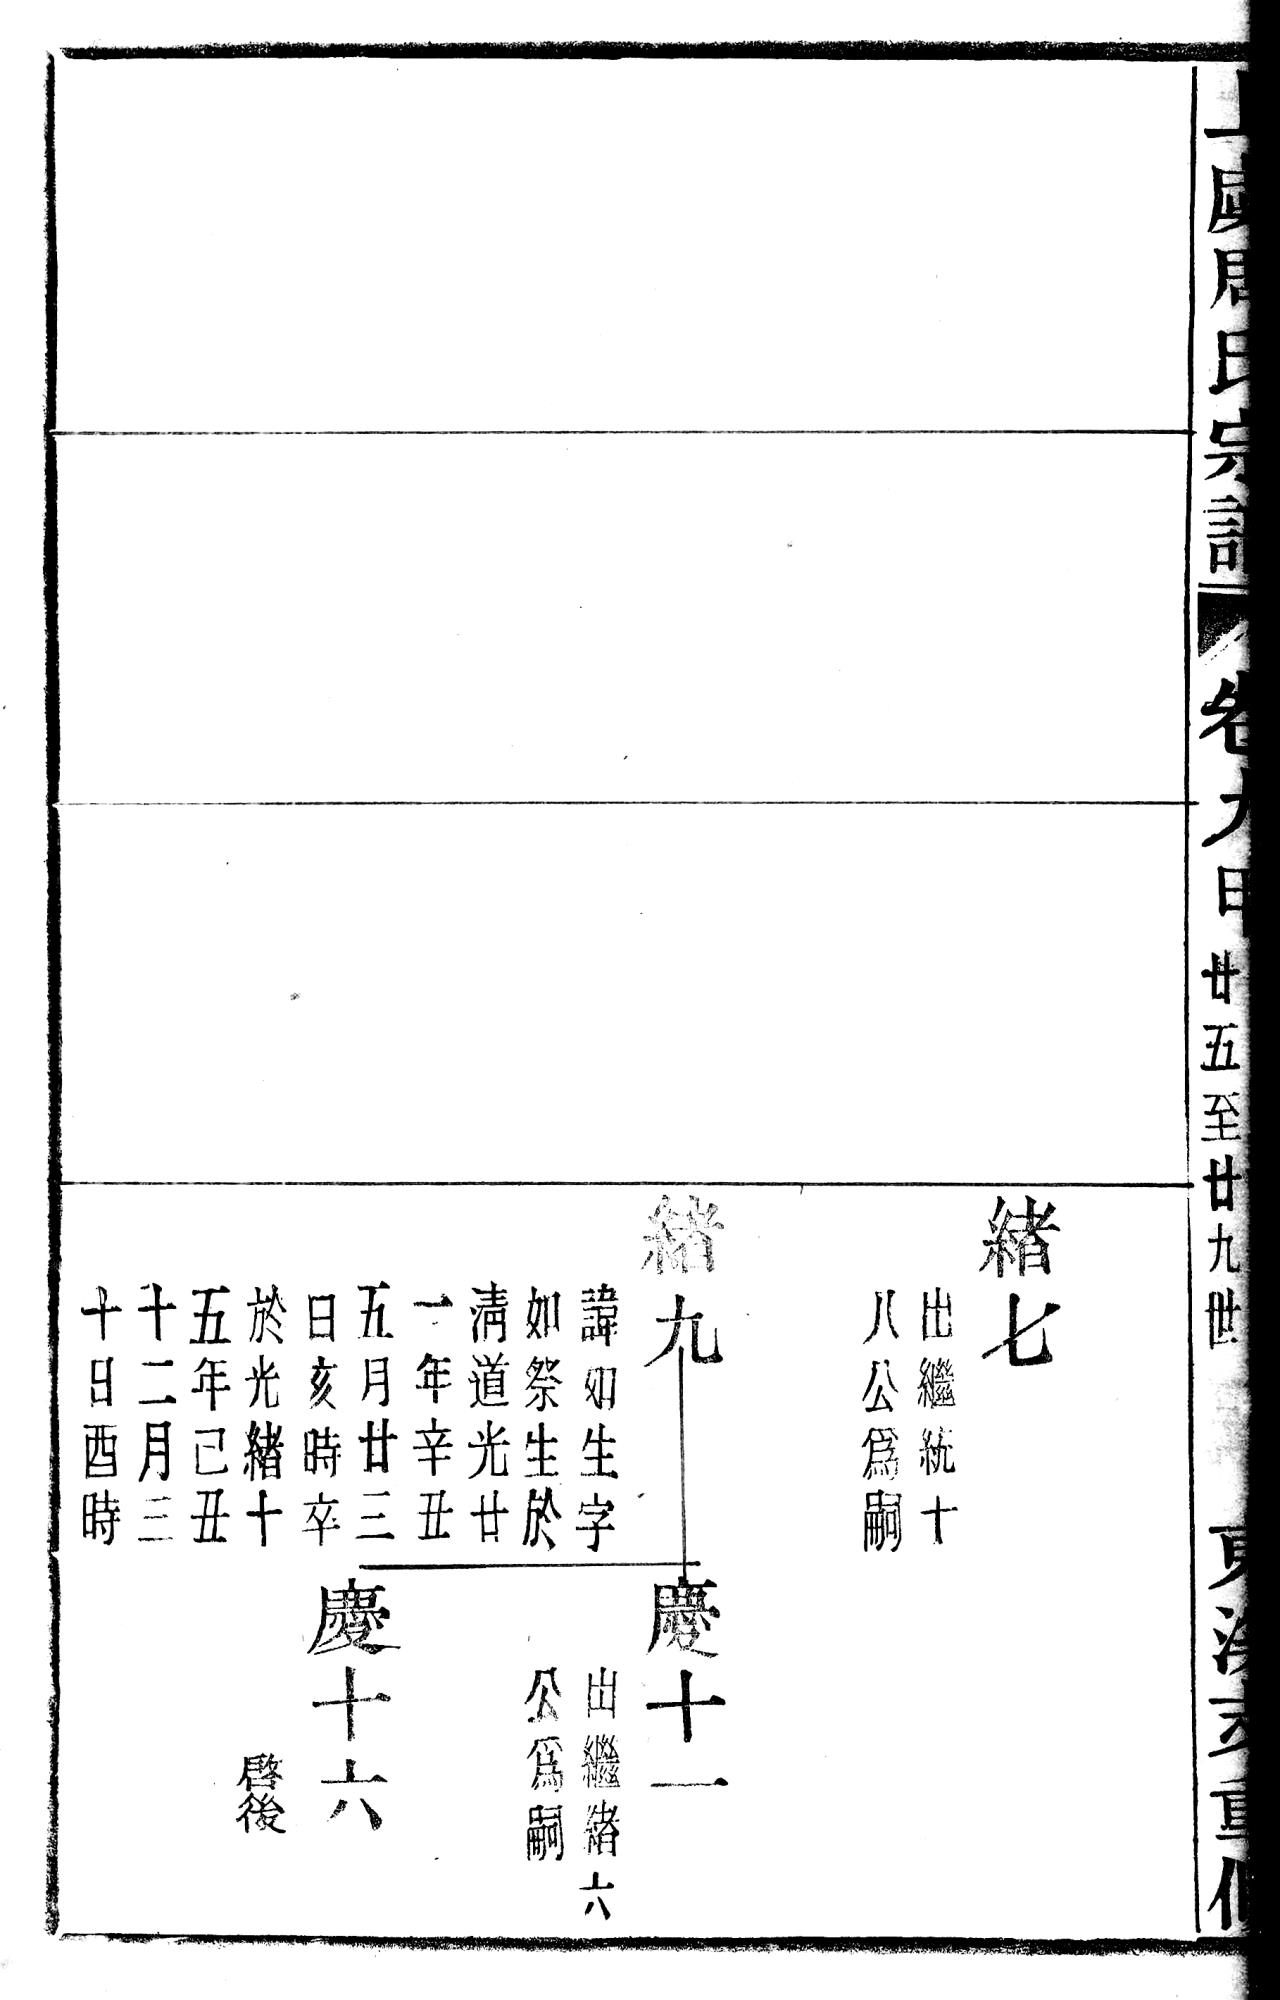 上虞周氏宗譜
卷九 甲 廿五至廿九世
重修
緒七
出繼統十
八公爲嗣
緒九
諱如生字
如祭生於
清道光廿
一年辛丑
五月廿三
日亥時卒
於光緒十
五年己丑
十二月三
十日酉時
慶十一
出繼緒六
公爲嗣
慶十六
啓後